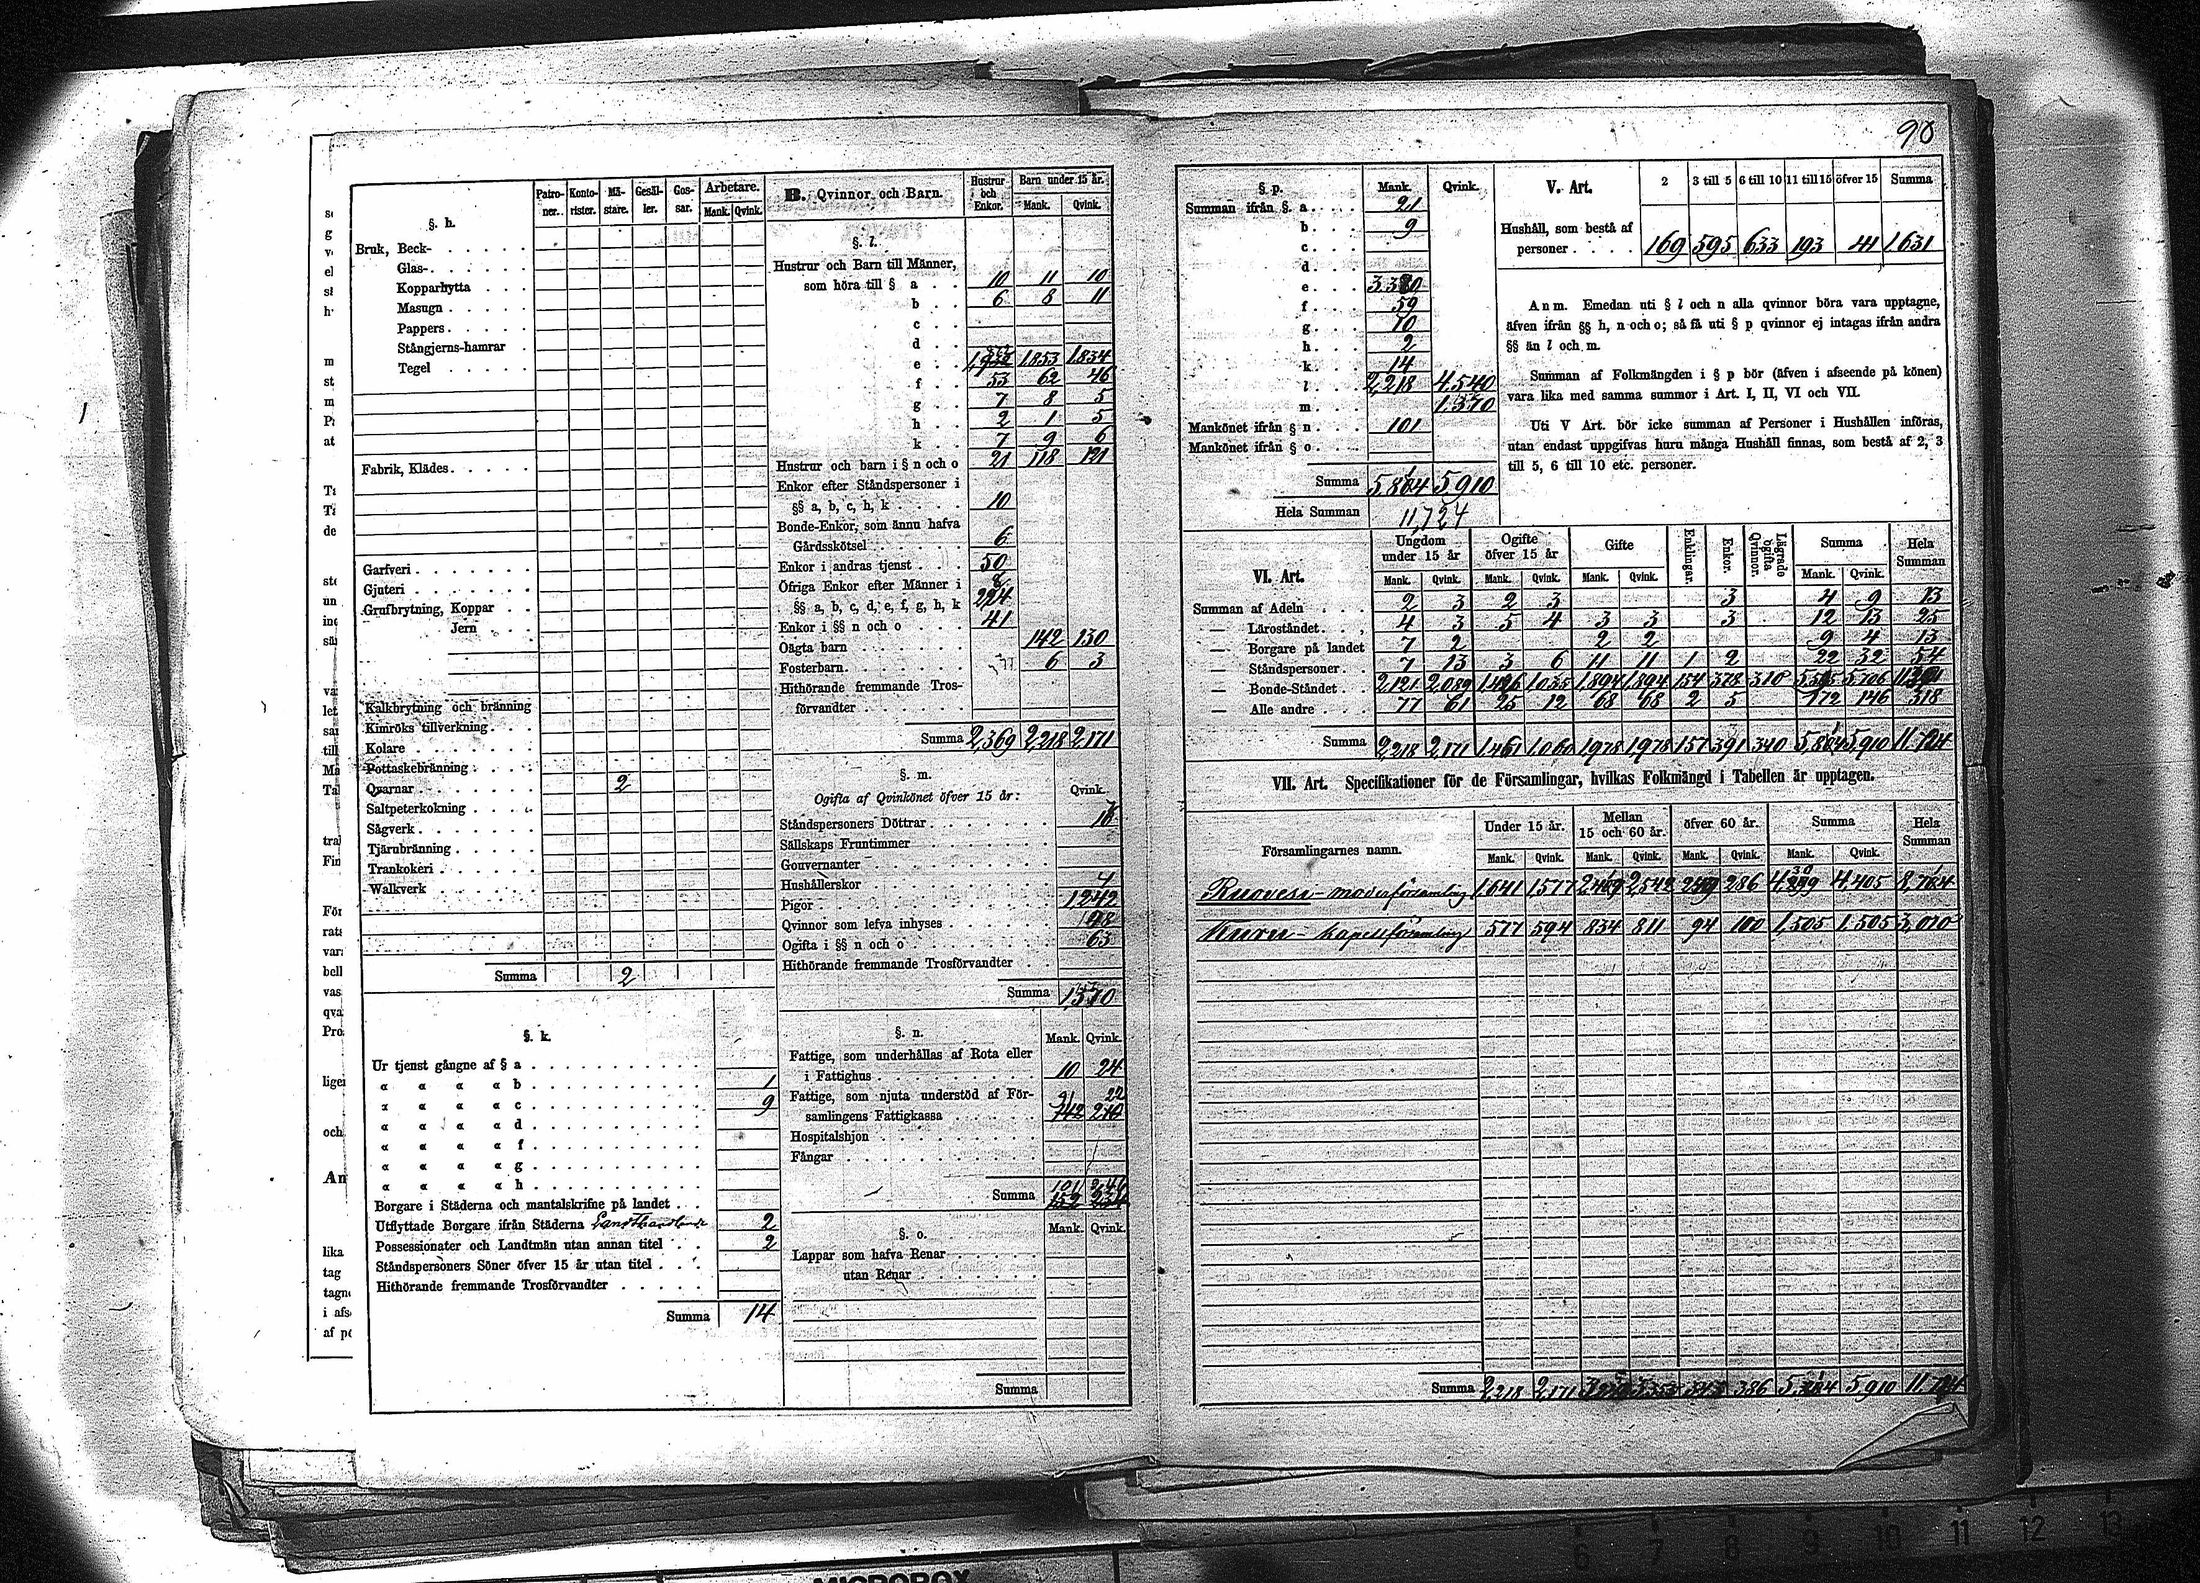 90
§. h.
Patro-ner. Konto-rister. Mä-stare. Gesäl-ler. Gos-sar. Arbetare. Mank. Qvink.
Bruk, Beck-
Glas-
Kopparhytta
Masugn
Pappers
Stångjerns-hamrar
Tegel
Fabrik, Klädes
Garfveri
Gjuteri
Grufbrytning, Koppar
Jern
Kalkbrytning och bränning
Kimröks tillverkning
Kolare
Pottaskebränning
Qvarnar 2
Saltpeterkokning
Sågverk
Tjärubränning
Trankokeri
Walkverk
Summa 2
§. k.
Ur tjenst gångne af § a
« « « « b 1
« « « « c 9
« « « « d
« « « « f
« « « « g
« « « « h
Borgare i Städerna och mantalskrifne på landet
Utflyttade Borgare ifrån Städerna 2
Possessionater och Landtmän utan annan titel 2
Ståndspersoners Söner öfver 15 år utan titel
Hithörande fremmande Trosförvandter
Summa 14
B. Qvinnor och Barn. Hustrur och Enkor. Barn under 15 år. Mank. Qvink.
§. l.
Hustrur och Barn till Männer,
som höra till § a 10 11 10
b 6 8 11
c
d
e 1,853 1,834
f 53 62 46
g 7 8 5
h 2 1 5
k 7 9 6
Hustrur och barn i § n och o 21 118 121
Enkor efter Ståndspersoner i
§§ a, b, c, h, k 10
Bonde-Enkor, som ännu hafva
Gårdsskötsel 6
Enkor i andras tjenst 50
Öfriga Enkor efter Männer i
§§ a, b, c, d, e, f, g, h, k
Enkor i §§ n och o 41
Oägta barn 142 130
Fosterbarn 6 3
Hithörande fremmande Tros-
förvandter
Summa 2,369 2,218 2,171
§. m.
Ogifta af Qvinkönet öfver 15 år: Qvink.
Ståndspersoners Döttrar
Sällskaps Fruntimmer
Gouvernanter
Hushållerskor 4
Pigor 1242
Qvinnor som lefva inhyses
Ogifta i §§ n och o 63
Hithörande fremmande Trosförvandter
Summa
§. n.
Mank. Qvink.
Fattige, som underhållas af Rota eller
i Fattighus 10 24
Fattige, som njuta understöd af För-
samlingens Fattigkassa
Hospitalshjon
Fångar
Summa
§. o.
Mank. Qvink.
Lappar som hafva Renar
utan Renar
Summa
§ p. Mank. Qvink.
Summan ifrån §. a 21
b 9
c
d
e
f 59
g 10
h 2
k 14
l 2,218 4,540
m
Mankönet ifrån § n 101
Mankönet ifrån § o
Summa 5,910
Hela Summan 11,724
V. Art. 2 3 till 5 6 till 10 11 till 15 öfver 15 Summa
Hushåll, som bestå af
personer 169 595 633 193 41 1631
Anm. Emedan uti § l och n alla qvinnor böra vara upptagne,
äfven ifrån §§ h, n och o; så få uti § p qvinnor ej intagas ifrån andra
§§ än l och m.
Summan af Folkmängden i § p bör (äfven i afseende på könen)
vara lika med samma summor i Art. I, II, VI och VII.
Uti V Art. bör icke summan af Personer i Hushållen införas,
utan endast uppgifvas huru många Hushåll finnas, som bestå af 2, 3
till 5, 6 till 10 etc. personer.
VI. Art. Ungdom under 15 år Ogifte öfver 15 år Gifte Enklingar. Enkor. Lägrade ogifta Qvinnor. Summa Hela Summan
Mank. Qvink. Mank. Qvink. Mank. Qvink. Mank. Qvink.
Summan af Adeln 2 3 2 3 3 4 9 13
— Läroståndet 4 3 5 4 3 3 3 12 13 25
— Borgare på landet 7 2 2 2 9 4 13
— Ståndspersoner 7 13 3 6 11 11 1 2 22 32 54
— Bonde-Ståndet 2,121 2,089 1035 1,894 1,894 154 378 5,706
— Alle andre 77 61 25 12 68 68 2 5 172 146 318
Summa 2,218 2,171 1,461 1,060 1,978 1,978 157 391 340 5,910 11,724
VII. Art. Specifikationer för de Församlingar, hvilkas Folkmängd i Tabellen är upptagen.
Församlingarnes namn. Under 15 år. Mellan 15 och 60 år. öfver 60 år. Summa Hela Summan
Mank. Qvink. Mank. Qvink. Mank. Qvink. Mank. Qvink.
Ruovesi - moderförsamling 1,641 1,577 2,542 286 4,405
Kuru - kapellförsamling 577 594 834 811 94 100 1,505 1,505 3,010
Summa 2,218 2,171 386 5,910 11,724